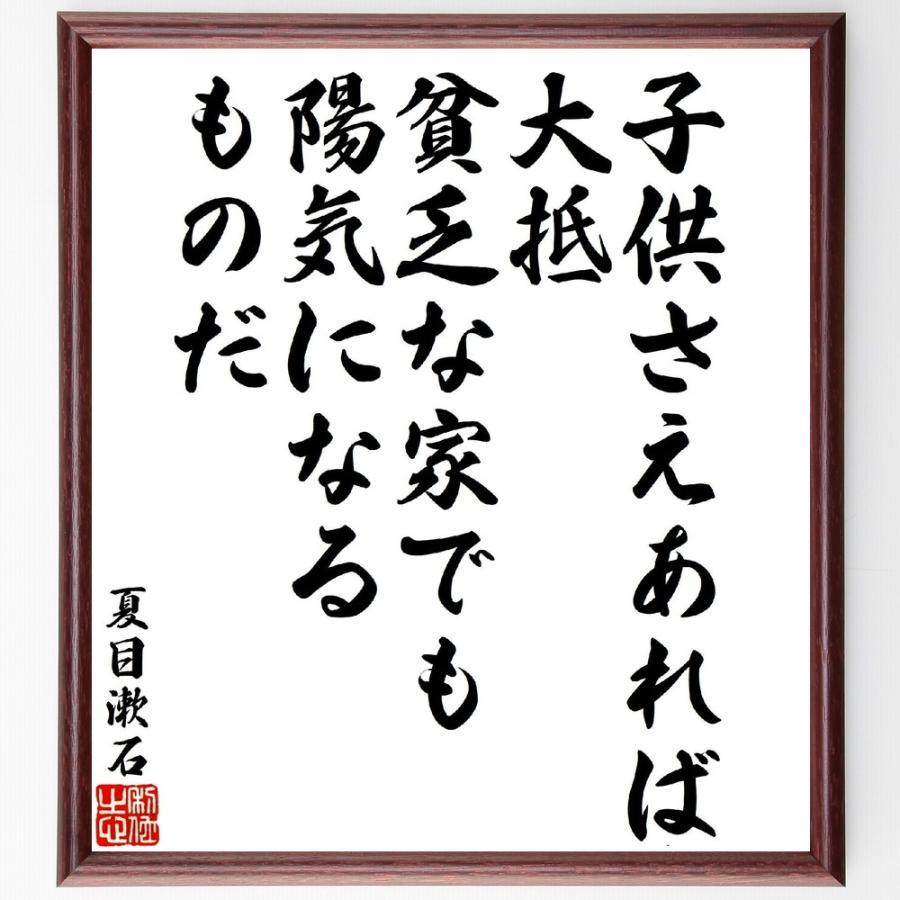 子供さえあれば
大抵
貧乏な家でも
陽気になる
ものだ
夏目漱石